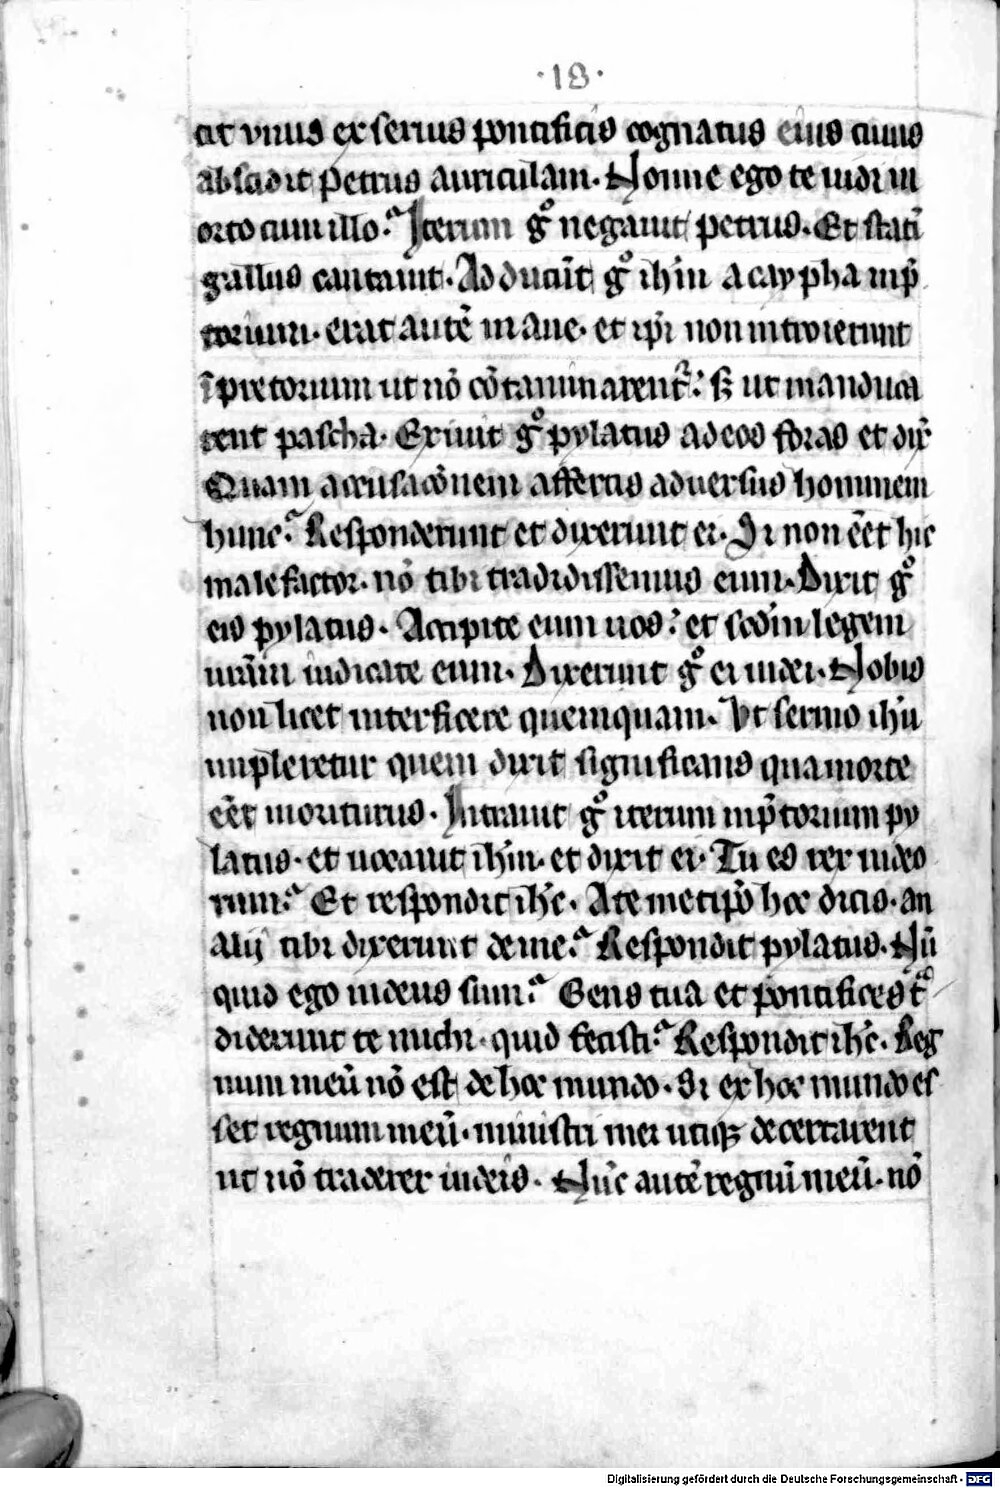 ·18·
cit vnus ex seruis pontificis cognatus eius cuius
abscidit petrus auriculam. Nonne ego te uidi in
orto cum illo? Iterum gͦ negauit petrus. Et statī
gallus cantauit. Adducūt gͦ ihm̄ a caypha in p̄
torium. erat autē mane. et ip̄i non introierunt
ī pretorium ut nō cōtaminarent᷑: sꝫ ut manduca
rent pascha. Exiuit gͦ pylatus ad eos foras et dix̄
Quam accusacōnem affertis aduersus hominem
hunc? Responderunt et dixerunt ei. Si non eēt hic
malefactor. nō tibi tradidissemus eum. Dixit gͦ
eis pylatus. Accipite eum uos: et scdm̄ legem
urām iudicate eum. Dixerunt gͦ ei iudei. Nobis
non licet interficere quemquam. Vt sermo ihu̅
impleretur quem dixit significans qua morte
eēt moriturus. Intrauit gͦ iterum in p̄torium py
latus. et uocauit ihm̄. et dixit ei. Tu es rex iudeo
rum? Et respondit ihc̄. A temetip̄o hoc dicis. an
alij tibi dixerunt de me? Respondit pylatus. Nū
quid ego iudeus sum? Gens tua et pontifices tͣ
diderunt te michi. quid fecisti? Respondit ihc̄. Reg
num meū nō est de hoc mundo. Si ex hoc mundo es
set regnum meū. ministri mei utiqꝫ decertarent
ut nō traderer iudeis. Nūc autē regnū meū. nō
Digitalisierung gefördert durch die Deutsche Forschungsgemeinschaft - DFG